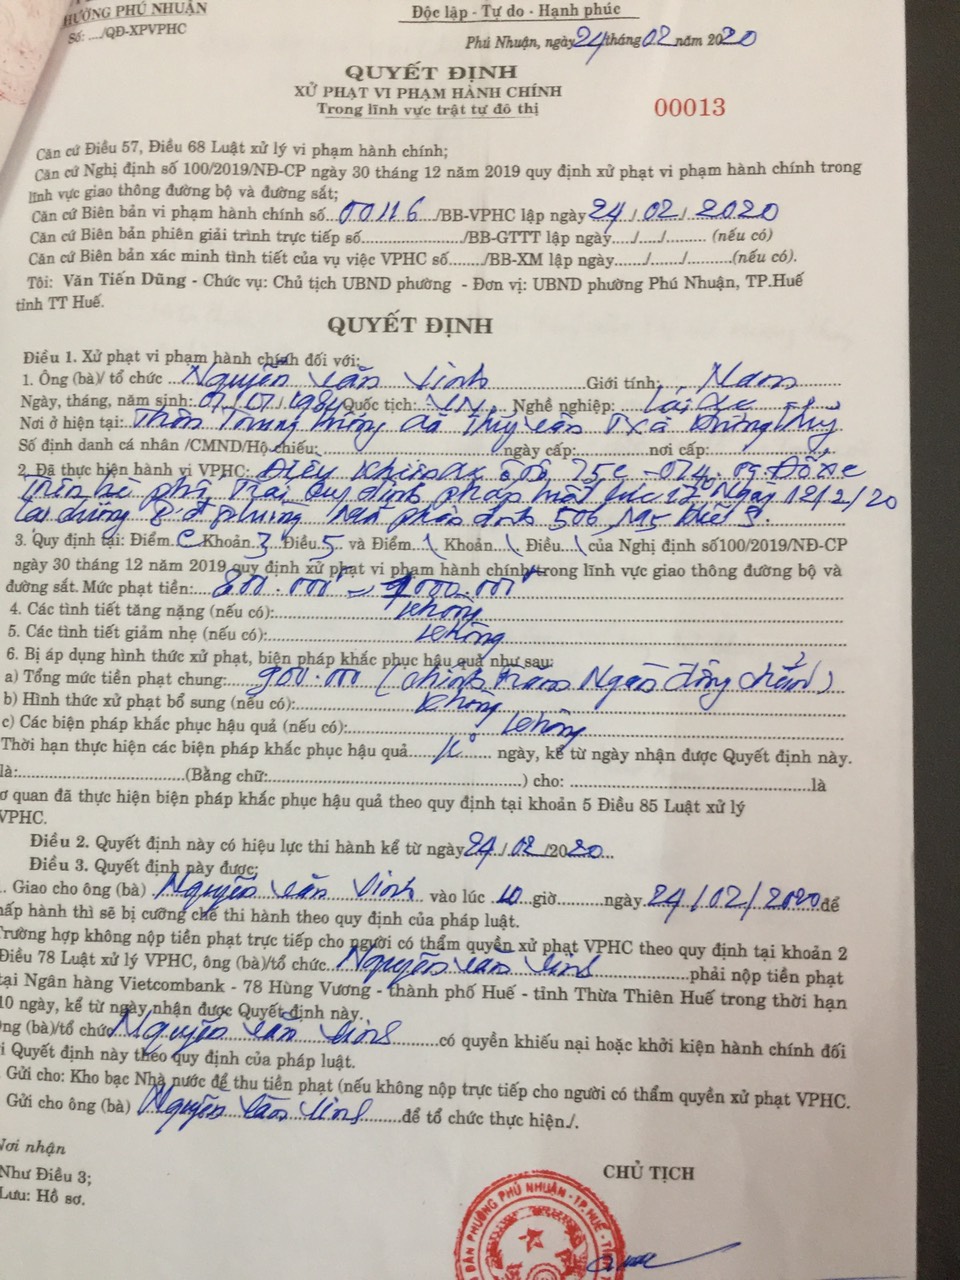 PHƯỜNG PHÚ NHUẬN
Số: .../QĐ-XPVPHC
Độc lập - Tự do - Hạnh phúc
Phú Nhuận, ngày 24 tháng 02 năm 2020
QUYẾT ĐỊNH
XỬ PHẠT VI PHẠM HÀNH CHÍNH
Trong lĩnh vực trật tự đô thị
00013
Căn cứ Điều 57, Điều 68 Luật xử lý vi phạm hành chính;
Căn cứ Nghị định số 100/2019/NĐ-CP ngày 30 tháng 12 năm 2019 quy định xử phạt vi phạm hành chính trong
lĩnh vực giao thông đường bộ và đường sắt;
Căn cứ Biên bản vi phạm hành chính số 00116 /BB-VPHC lập ngày 24/02/2020
Căn cứ Biên bản phiên giải trình trực tiếp số....................../BB-GTTT lập ngày..../..../......... (nếu có)
Căn cứ Biên bản xác minh tình tiết của vụ việc VPHC số......../BB-XM lập ngày....../....../..........(nếu có).
Tôi: Văn Tiến Dũng - Chức vụ: Chủ tịch UBND phường - Đơn vị: UBND phường Phú Nhuận, TP.Huế
tỉnh TT Huế.
QUYẾT ĐỊNH
Điều 1. Xử phạt vi phạm hành chính đối với:
1. Ông (bà)/ tổ chức Nguyễn Văn Vinh Giới tính: Nam
Ngày, tháng, năm sinh: 01/07/1984 Quốc tịch: VN Nghề nghiệp: Lái xe
Nơi ở hiện tại: Thôn Trung xã Thủy Vân TXã Hương Thủy
Số định danh cá nhân /CMND/Hộ chiếu:..................ngày cấp:............nơi cấp:............
2. Đã thực hiện hành vi VPHC: Điều khiển xe 75C-074.09 Đỗ xe
Trên hè phố Trái quy định pháp luật lúc 17 Ngày 12/2/20
Tại đường
3. Quy định tại: Điểm e Khoản 3 Điều 5 và Điểm \ Khoản \ Điều \ của Nghị định số100/2019/NĐ-CP
ngày 30 tháng 12 năm 2019 quy định xử phạt vi phạm hành chính trong lĩnh vực giao thông đường bộ và
đường sắt. Mức phạt tiền: 800.000 - 1000.000
4. Các tình tiết tăng nặng (nếu có): Không
5. Các tình tiết giảm nhẹ (nếu có): Không
6. Bị áp dụng hình thức xử phạt, biện pháp khắc phục hậu quả như sau:
a) Tổng mức tiền phạt chung: 900.000 (Chính trăm Ngàn đồng chẵn)
b) Hình thức xử phạt bổ sung (nếu có): Không
c) Các biện pháp khắc phục hậu quả (nếu có): Không
Thời hạn thực hiện các biện pháp khắc phục hậu quả K° ngày, kể từ ngày nhận được Quyết định này.
là:............................(Bằng chữ:...........................................) cho: ..........................................là
ơ quan đã thực hiện biện pháp khắc phục hậu quả theo quy định tại khoản 5 Điều 85 Luật xử lý
VPHC.
Điều 2. Quyết định này có hiệu lực thi hành kể từ ngày 24/02/2020...
Điều 3. Quyết định này được:
. Giao cho ông (bà) Nguyễn Văn Vinh vào lúc 10 giờ.........ngày 24/02/2020 để
hấp hành thì sẽ bị cưỡng chế thi hành theo quy định của pháp luật.
Trường hợp không nộp tiền phạt trực tiếp cho người có thẩm quyền xử phạt VPHC theo quy định tại khoản 2
Điều 78 Luật xử lý VPHC, ông (bà)/tổ chức Nguyễn Văn Vinh phải nộp tiền phạt
tại Ngân hàng Vietcombank - 78 Hùng Vương - thành phố Huế - tỉnh Thừa Thiên Huế trong thời hạn
10 ngày, kể từ ngày nhận được Quyết định này.
ng (bà)/tổ chức Nguyễn Văn Vinh có quyền khiếu nại hoặc khởi kiện hành chính đối
i Quyết định này theo quy định của pháp luật.
Gửi cho: Kho bạc Nhà nước để thu tiền phạt (nếu không nộp trực tiếp cho người có thẩm quyền xử phạt VPHC.
Gửi cho ông (bà) Nguyễn Văn Vinh để tổ chức thực hiện./.
Nơi nhận
Như Điều 3;
Lưu: Hồ sơ.
CHỦ TỊCH
DÂN PHƯỜNG PHÚ NHUẬN - TP. HUẾ - T